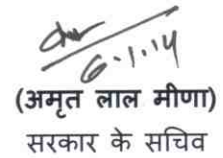 6.1.14
(अमृत लाल मीणा)
सरकार के सचिव